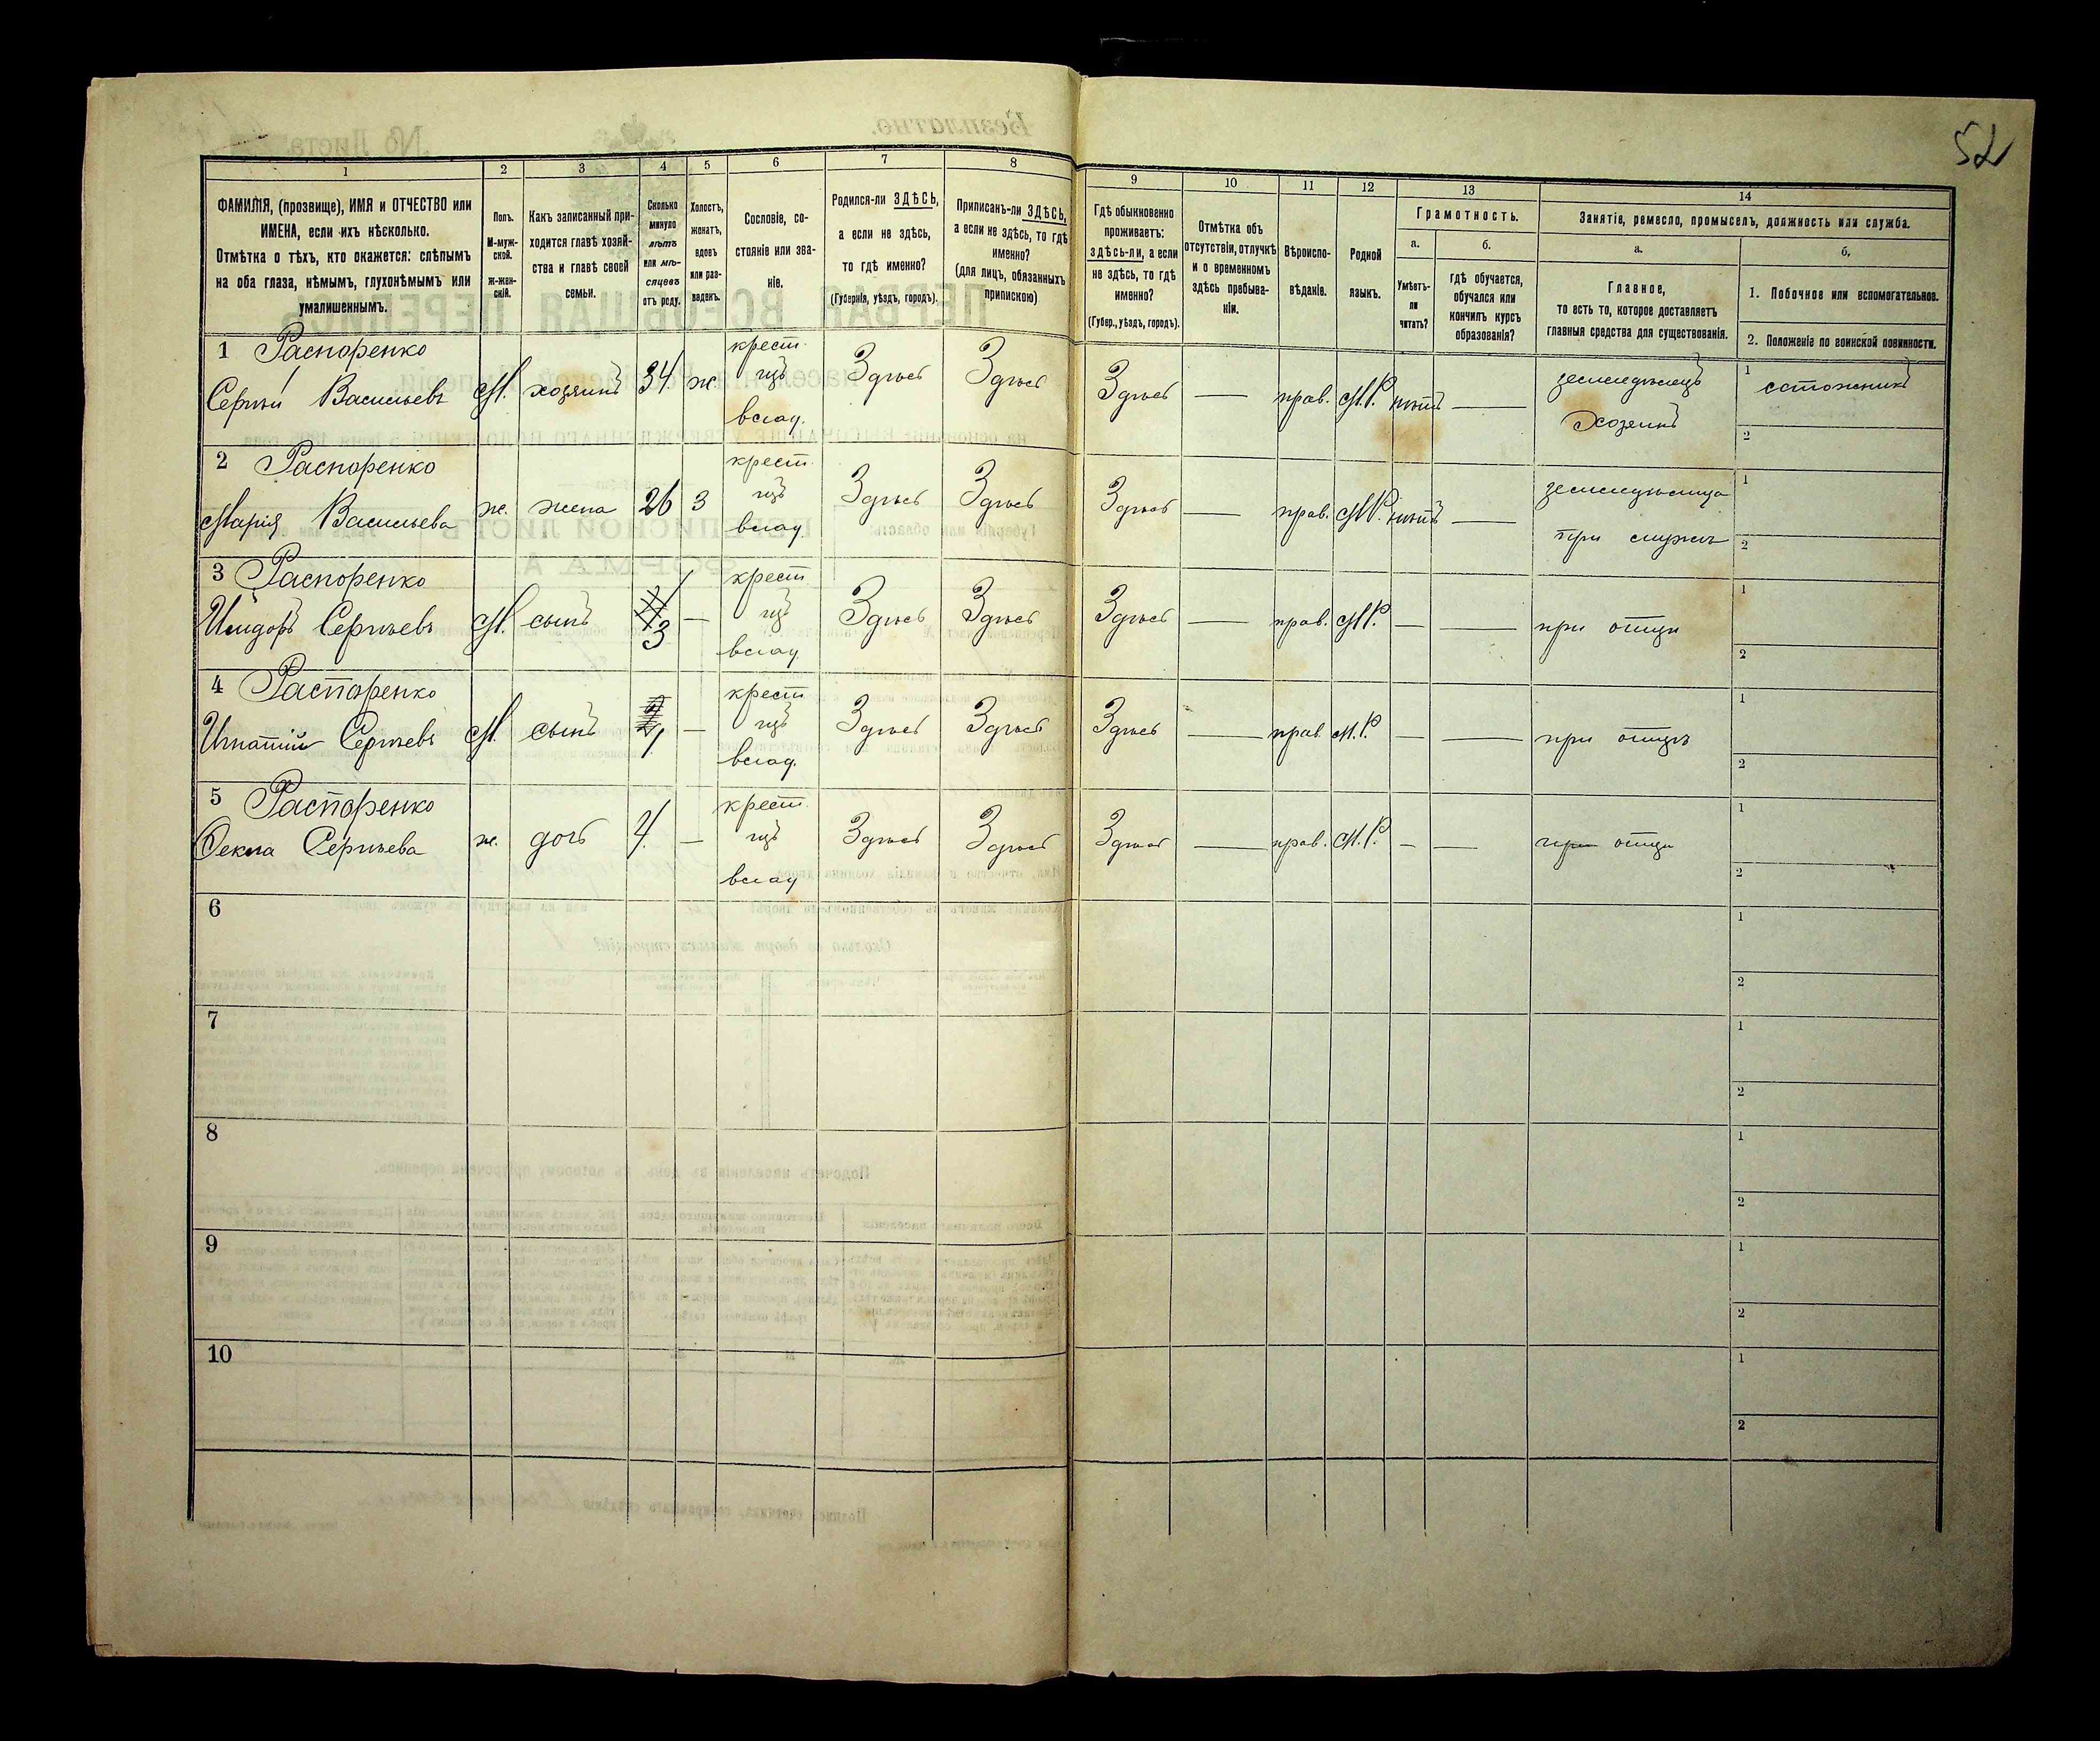 52
1 2 3 4 5 6 7 8 9 10 11 12 13 14
ФАМИЛІЯ, (прозвище), ИМЯ и ОТЧЕСТВО или
ИМЕНА, если ихъ нѣсколько.
Отмѣтка о тѣхъ, кто окажется: слѣпымъ
на оба глаза, нѣмымъ, глухонѣмымъ или
умалишеннымъ.
Полъ.
М-муж-
ской.
Ж-жен-
скій.
Какъ записанный при-
ходится главѣ хозяй-
ства и главѣ своей
семьи.
Сколько
минуло
лѣтъ
или мѣ-
сяцевъ
отъ роду.
Холостъ,
женатъ,
вдовъ
или раз-
веденъ.
Сословіе, со-
стояніе или зва-
ніе.
Родился-ли ЗДѢСЬ,
а если не здѣсь,
то гдѣ именно?
(Губернія, уѣздъ, городъ).
Приписанъ-ли ЗДѢСЬ,
а если не здѣсь, то гдѣ
именно?
(для лицъ, обязанныхъ
припискою)
Гдѣ обыкновенно
проживаетъ:
здѣсь-ли, а если
не здѣсь, то гдѣ
именно?
(Губер., уѣздъ, городъ).
Отмѣтка объ
отсутствіи, отлучкѣ
и о временномъ
здѣсь пребыва-
ніи.
Вѣроиспо-
вѣданіе.
Родной
языкъ.
Грамотность.
а.
Умѣетъ-
ли
читать?
б.
гдѣ обучается,
обучался или
кончилъ курсъ
образованія?
Занятіе, ремесло, промыселъ, должность или служба.
а.
Главное,
то есть то, которое доставляетъ
главныя средства для существованія.
б.
1. Побочное или вспомогательное.
2. Положеніе по воинской повинности.
1 Распоренко крест. Здѣсь Здѣсь земледѣлецъ 1
Сергѣй Васильевъ М. хозяинъ 34 ж. изъ Здѣсь — прав. М.Р. нѣтъ —
влад. Хозяинъ 2
2 Распоренко крест. Здѣсь Здѣсь земледѣлица 1
Марія Васильева ж. жена 26 З изъ Здѣсь — прав. М.Р. нѣтъ —
влад. при мужѣ 2
3 Распоренко крест 1
Исидоръ Сергѣевъ М. сынъ 3 — изъ Здѣсь Здѣсь Здѣсь — прав. М.Р. — — при отцѣ
влад 2
4 Распоренко крест 1
Игнатій Сергѣевъ М. сынъ 1 — изъ Здѣсь Здѣсь Здѣсь — прав. М.Р. — — при отцѣ
влад. 2
5 Распоренко крест. 1
Фекла Сергѣева ж. дочь — изъ Здѣсь Здѣсь Здѣсь — прав. М.Р. — — при отцѣ
влад 2
6 1
2
7 1
2
8 1
2
9 1
2
10 1
2